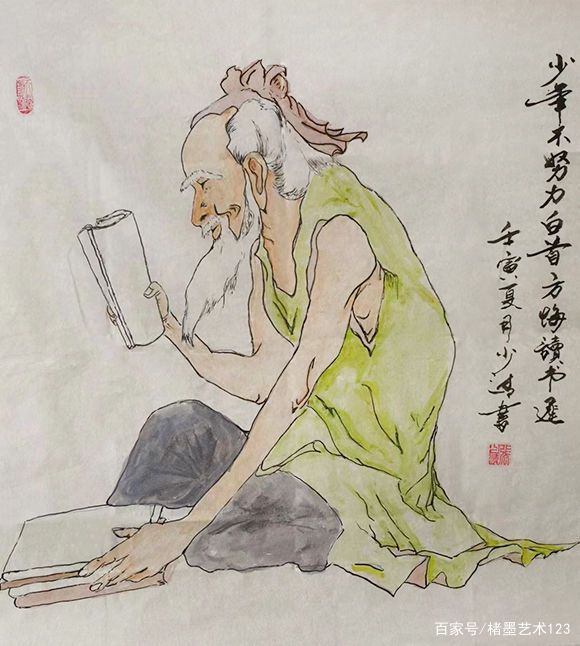 少年不努力白首方悔讀书遲
壬寅夏月少書
百家号/楮墨艺术123